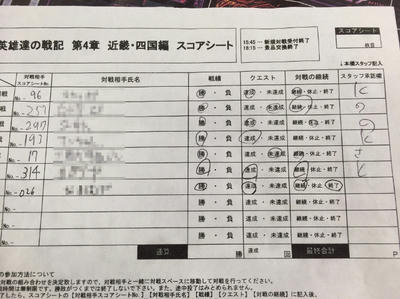 英雄達の戦記 第4章 近畿・四国編 スコアシート
15:45 ー 新規対戦受付終了
18:15 ー 景品交換終了
スコアシート
枚目
↓本欄スタッフ記入
対戦相手
スコアシートNo.
対戦相手氏名
戦績
クエスト
対戦の継続
スタッフ承認欄
戦 No.- 96 勝・負 達成・未達成 継続・休止・終了
戦 No.- 257 勝・負 達成・未達成 継続・休止・終了
戦 No.- 297 勝・負 達成・未達成 継続・休止・終了
戦 No.- 193 勝・負 達成・未達成 継続・休止・終了
戦 No.- 17 勝・負 達成・未達成 継続・休止・終了 さ
戦 No.- 314 勝・負 達成・未達成 継続・休止・終了
No.- 026 勝・負 達成・未達成 継続・休止・終了
No.- 勝・負 達成・未達成 継続・休止・終了
No.- 勝・負 達成・未達成 継続・休止・終了
No.- 勝・負 達成・未達成 継続・休止・終了
通算 勝 敗 達成 回 最終合計 P
の参加方法について
戦の組み合わせを決定致しますので、対戦相手と一緒に対戦スペースに移動して対戦を行ってください。
了したら、スコアシートの【対戦相手スコアシートNo.】【対戦相手氏名】【戦績】【クエスト】【対戦の継続】に記入後、